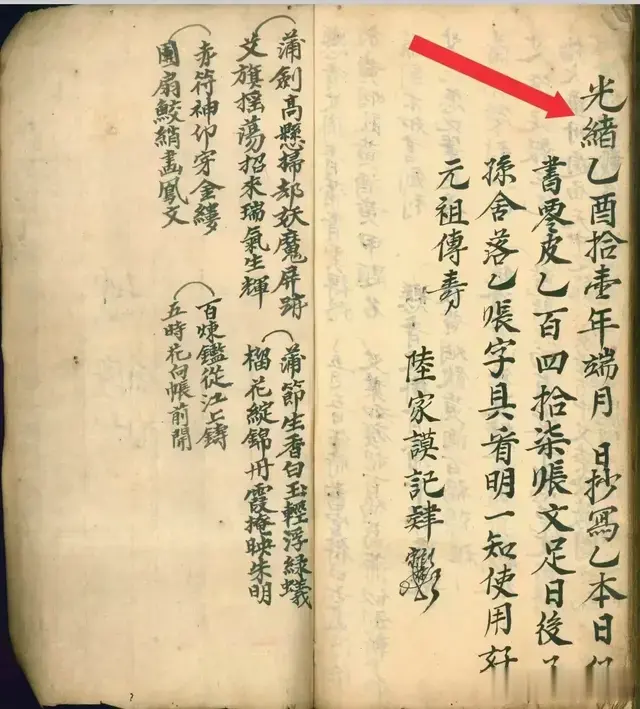 光緒乙酉拾壹年端月 日抄寫乙本日
書零皮乙百四拾柒帳文足日後
孫舍落乙帳字具看明一知使用好
元祖傳壽
陸家謨記肆
蒲劍高懸掃却妖魔屏跡
艾旗搖蕩招來瑞氣生輝
蒲節生香白玉輕浮綠蟻
榴花綻錦丹霞掩映朱明
赤符神卯穿金縷
團扇鮫綃畫鳳文
百煉鑑從江上鑄
五時花向帳前開